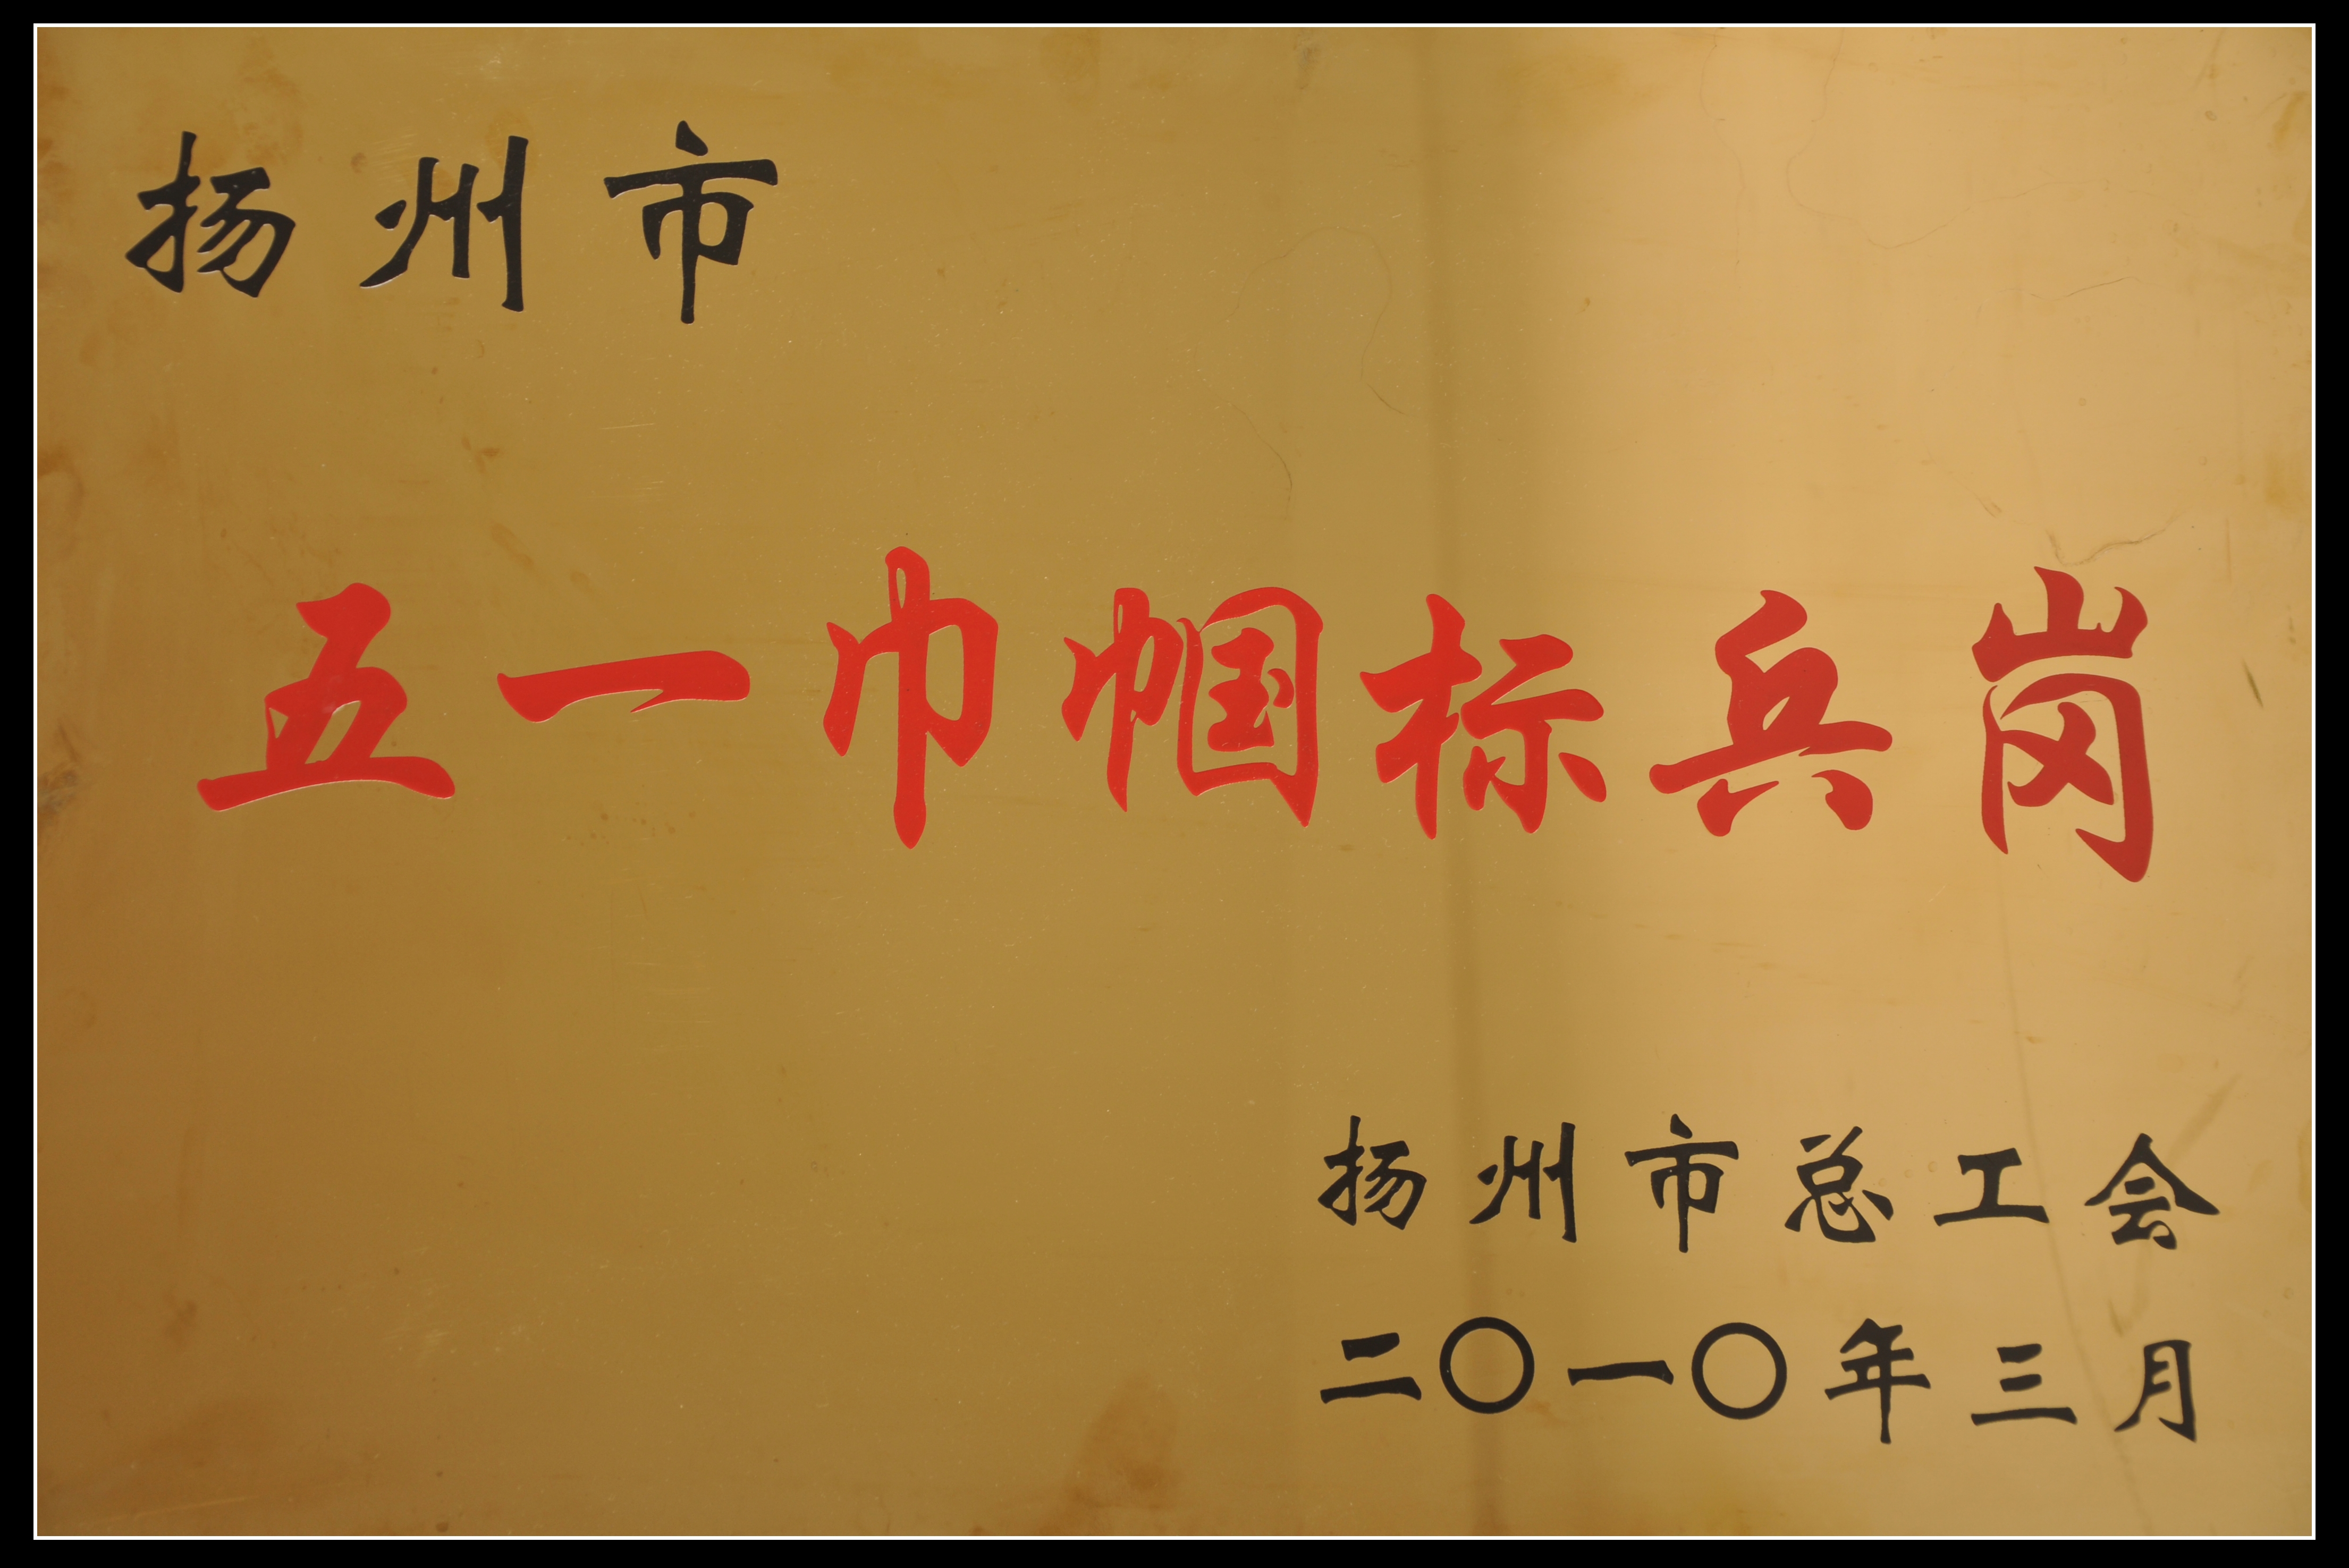 扬州市
五一巾帼标兵岗
扬州市总工会
二〇一〇年三月